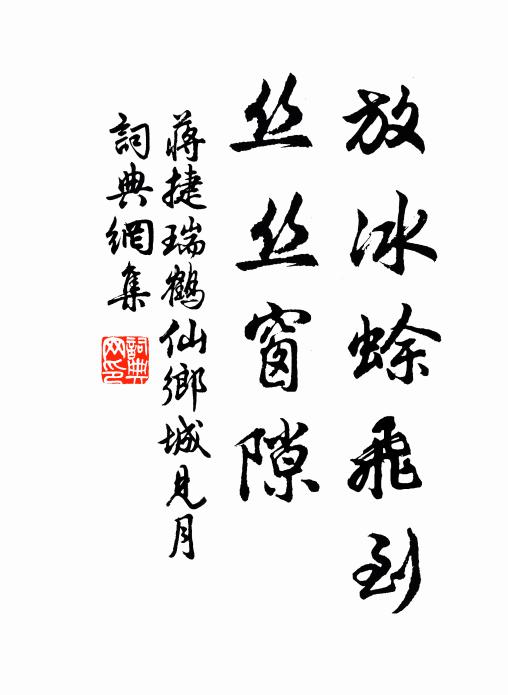 放冰蜍飛到
丝丝窗隙
蔣捷瑞鶴仙鄉城見月
詞典網集
詞典网印